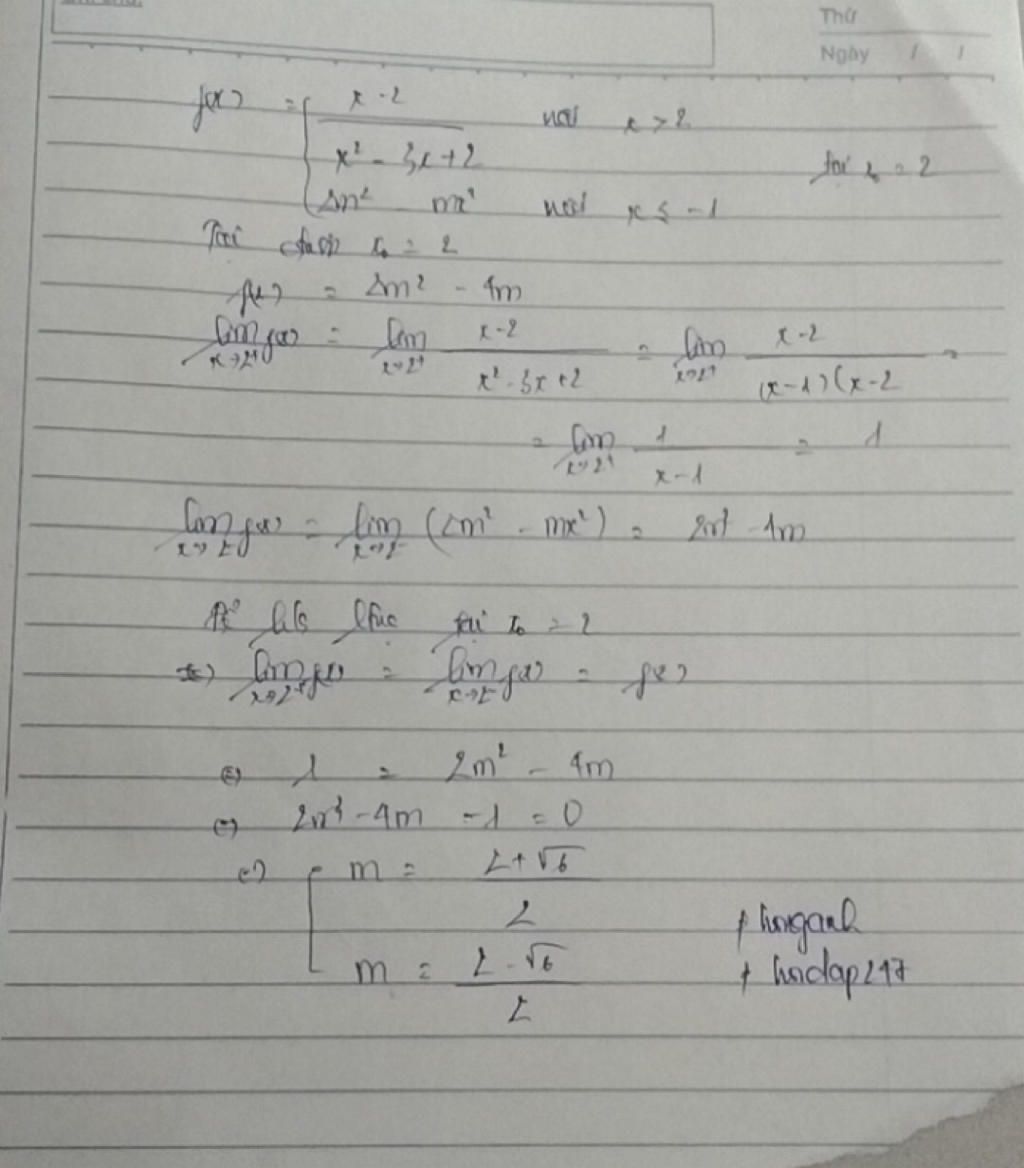 Thứ
Ngày / /
f(x) = { x-2 / x² - 3x + 2 nếu x > 2
tại x₀ = 2
2m² mx² nếu x ≤ -1
Tại điểm x₀ = 2
f(x) = 2m² - 4m
lim x→2⁺ f(x) = lim x→2⁺ x-2 / x² - 3x + 2 = lim x→2⁺ x-2 / (x-1)(x-2 =
= lim x→2⁺ 1 / x-1 = 1
lim x→2⁻ f(x) = lim x→2⁻ (2m² - mx²) = 2m² - 4m
Để h/s tại x₀ = 2
lim x→2⁺ f(x) = lim x→2⁻ f(x) = f(x)
⇔ 1 = 2m² - 4m
⇔ 2m² - 4m - 1 = 0
⇔ [ m = 2 + √6 / 2
m = 2 - √6 / 2
+ hoidap247